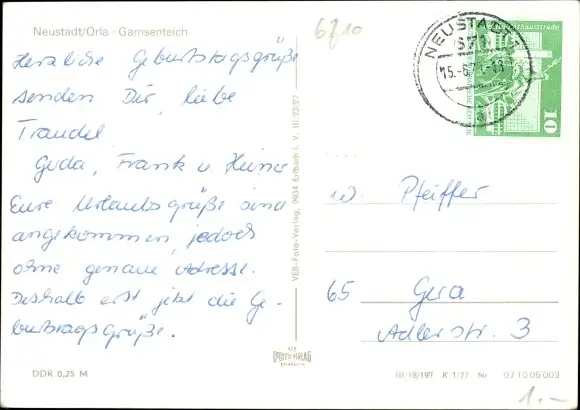 Neustadt/Orla · Gamsenteich
6710
Herzliche Geburtstagsgrüße
senden Dir, liebe
Traudel
Guda, Frank u. Heiner
Eure Urlaubsgrüße sind
angekommen, jedoch
ohne genaue Adresse.
Deshalb erst jetzt die Ge-
burtstagsgrüße.
DDR 0,25 M
VEB-Foto-Verlag, 9934 Erlbach i. V.
NEUSTADT
671
10
Pfeiffer
65 Gera
Adlerstr. 3
III/18/197 K 1/77 Nr 07 10 05 003
1.-